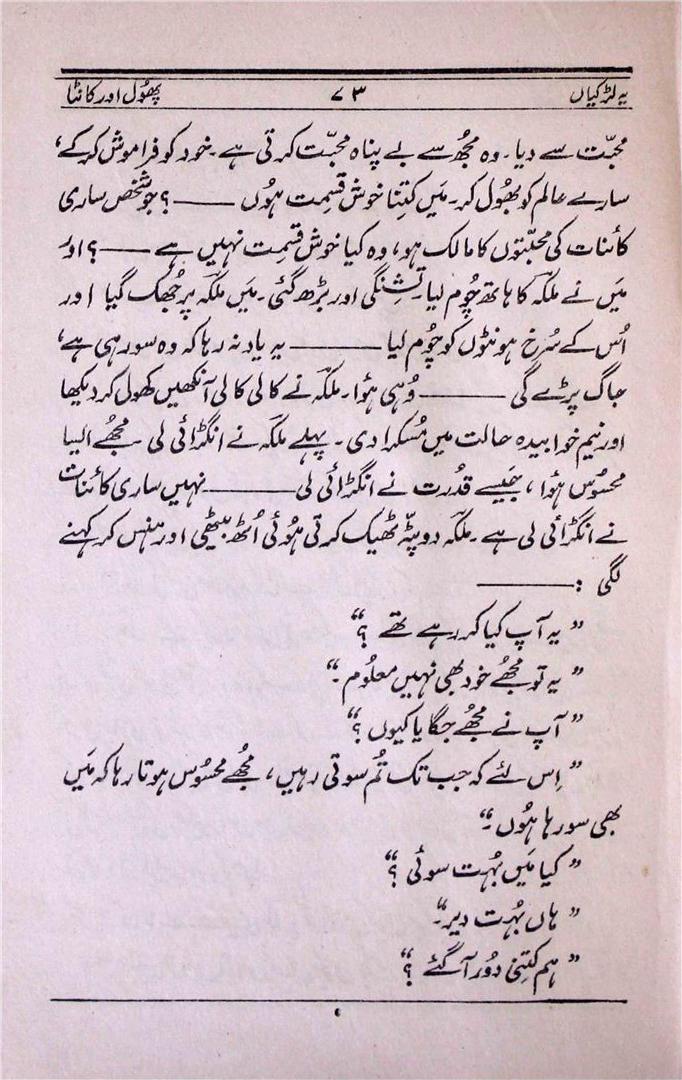 یہ لڑکیاں ۷۳ پھُول اور کانٹا
محبّت سے دیا۔ وہ مجھُ سے بے پناہ محبّت کرتی ہے۔ خود کو فراموش کر کے،
سارے عالم کو بھُول کر۔ میَں کِتنا خوش قِسمت ہوُں ——؟ جو شخص ساری
کائنات کی محبّتوں کا مالک ہو، وہ کیا خوش قسمت نہیں ہے ——؟ اور
میَں نے ملکہ کا ہاتھ چوُم لیا۔ تِشنگی اور بڑھ گئی۔ میَں ملکہ پر جھُک گیا اور
اُس کے سُرخ ہونٹوں کو چوُم لیا ——— یہ یاد نہ رہا کہ وہ سو رہی ہے،
جاگ پڑے گی ——— وُہی ہؤا۔ ملکہ نے کالی کالی آنکھیں کھول کر دیکھا
اور نیم خوابیدہ حالت میں مُسکرا دی۔ پہلے ملکہ نے انگڑائی لی۔ مجھُے ایسا
محسوُس ہؤا، جیَسے قدُرت نے انگڑائی لی ——— نہیں ساری کائنات
نے انگڑائی لی ہے۔ ملکہ دوپٹّہ ٹھیک کرتی ہوُئی اُٹھ بیٹھی اور ہنس کر کہنے
لگی :———
”یہ آپ کیا کر رہے تھے ؟“
”یہ تو مجھُے خود بھی نہیں معلوُم۔“
”آپ نے مجھُے جگایا کیوں ؟“
”اِس لئے کہ جب تک تُم سوتی رہیں، مجھُے محسوُس ہوتا رہا کہ میَں
بھی سو رہا ہوُں۔“
”کیا میَں بہُت سوئی ؟“
”ہاں بہُت دیر۔“
”ہم کِتنی دوُر آ گئے ؟“